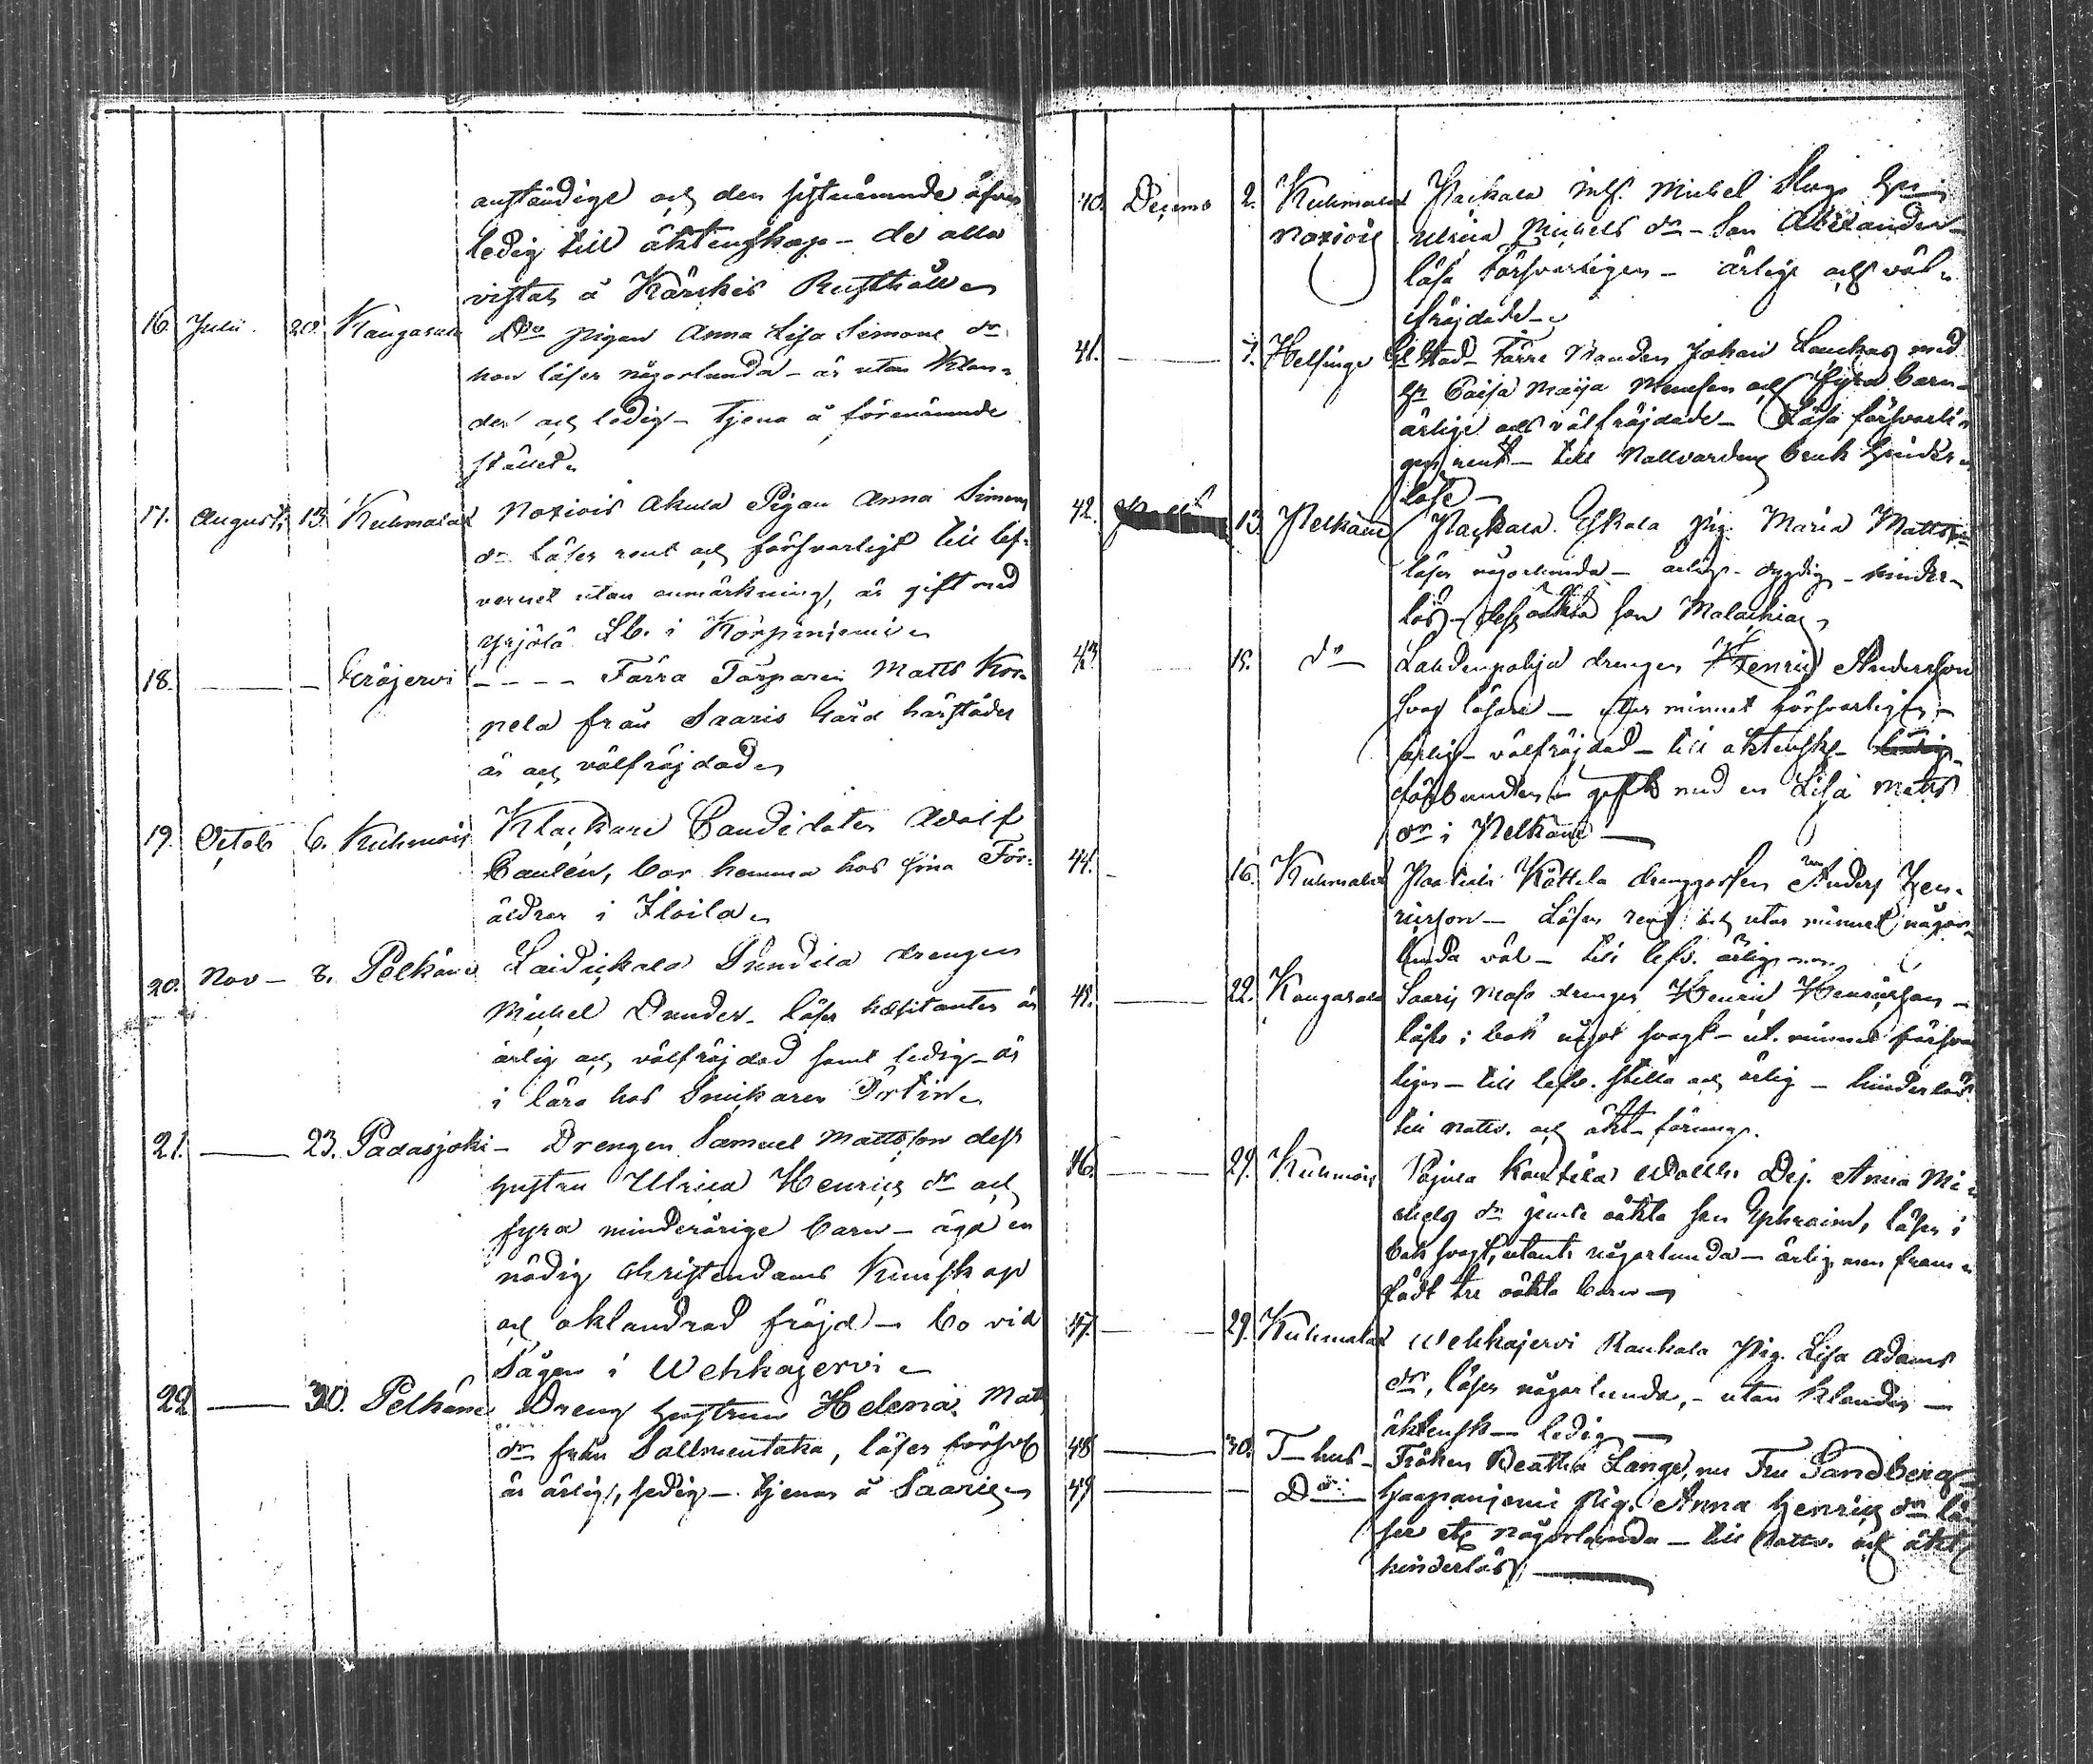 anständige och den sistnämnde äfven
ledig till äktenskap - de alla
vistas å Kärskis Rusthåll
16. Julii. 20. Kangasala Do pigan Anna Lisa Simons dr
hon läser någorlunda - är utan klan-
der och ledig - tjena å förenämnde
ställe
17. Augusti 13. Kuhmalax Akula Pigan Anna Simons
dr läser rent och försvarligt till lef-
vernet utan anmärkning, är gift med
Yrjölä i Körpiniemi
18. — — Eräjervi - - - - Förra Torparen Matts Kor-
pela från Saaris Gård härstädes
är och välfräjdad
19. Octob 6. Kuhmois Klackane Candidaten Adolf
bor hemma hos sina För-
äldrar i
20. Nov — 8. Pelkäne Laidickala drengen
Michel Dunder - läser hæsitanter är
ärlig och välfräjdad samt ledig - är
i lära hos Snickaren
21. — 23. Padasjoki - Drengen Samuel Mattsson dess
hustru Ulrica Henrics dr och
fyra minderårige barn - äga en
nödig christendoms kunskap
och oklandrad fräjd - bo vid
Sågen i Wehkajervi
22 — 30. Pelkäne Dreng hustrun Helena Matts
dr från Sallmentaka, läser försvl
är ärlig, sedig - tjenar å Saaris
40. Decemb 2. Kuhmalax Packala Michel
Ulrica Michels dr - Son Alexander
läsa försvarligen - ärlige och väl-
fräjdade
41. — 7. Helsinge Förre Johan med
Caisa Maija och fyra barn -
ärlige och välfräjdade - Läsa försvarli-
gen rent - till Nattvardens bruk hinder-
löse -
42. 13 Pelkäne Packala Eskola pig. Maria Matts dr
läser någorlunda - ärlig - dygdig - hinder-
lös - dess oäkta son Malachias
43 15. do Lahdenpohja drengen Henric Andersson
svag läsare - utur minnet försvarligen -
ärlig - välfräjdad - till äktensk.
förbunden - gift med en Lisa Matts
dr i Pelkäne —
44. - 16. Kuhmalax Köttilä Anders Hen-
ricsson - Läser rent och utur minnet någor-
lunda väl - till lefv. ärlig
45. — 22. Kangasala Saaris drengen Henric Henricsson -
läser i bok något svagt - ut. minnet försvar
ligen - till lefv. stilla och ärlig - hinderlös
till nattv. och äkt. förening.
46. — 29. Kuhmois Dej. Anna Mi-
chels dr jemte oäkta son Ephraim, läser i
bok svagt, utantill någorlunda - ärlig, men fram-
födt tre oäkta barn
47. — 29. Kuhmalax Wehkajervi Pig. Lisa Adams
dr, läser någorlunda, - utan klander -
äktensk - ledig —
48 — 30. T-hus - Fröken Beatha Lange, nu Fru Sandberg
49 — — Do Haapaniemi Pig. Anna Henrics dr lä-
ser etc någorlunda - till Nattv. och äkt
hinderlös —